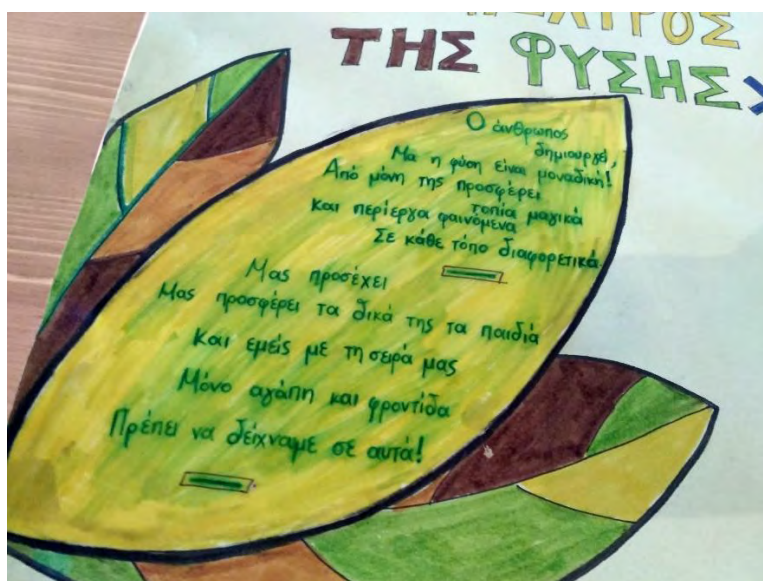 ΤΗΣ ΦΥΣΗΣ>
Ο άνθρωπος
δημιουργεί,
Μα η φύση είναι μοναδική!
Από μόνη της προσφέρει
τοπία μαγικά
Και περίεργα φαινόμενα
Σε κάθε τόπο διαφορετικά.
Μας προσέχει
Μας προσφέρει τα δικά της τα παιδιά
Και εμείς με τη σειρά μας
Μόνο αγάπη και φροντίδα
Πρέπει να δείχναμε σε αυτά!